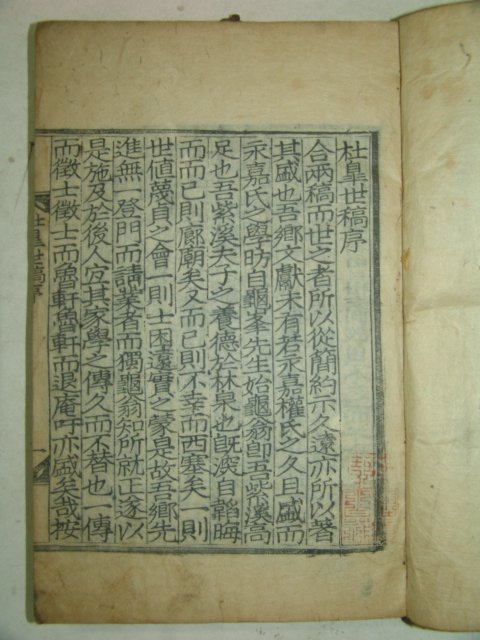 杜皐世稿序
合兩稿而世之者所以從簡約示久遠亦所以著
其盛也吾鄕文獻未有若永嘉權氏之久且盛而
永嘉氏之學昉自龜峯先生始龜翁卽吾紫溪高
足也吾紫溪夫子之養德於林泉也旣深自韜晦
而而已則廊廟矣又而已則不幸而西塞矣一則
世値蔑貞之會一則士困遠實之蒙是故吾鄕先
進無一登門而請業者而獨龜翁知所就正遂以
是施及於後人宜其家學之傳久而不替也一傳
而徵士徵士而魯軒魯軒而退庵吁亦盛矣哉按
杜皐世稿序 一